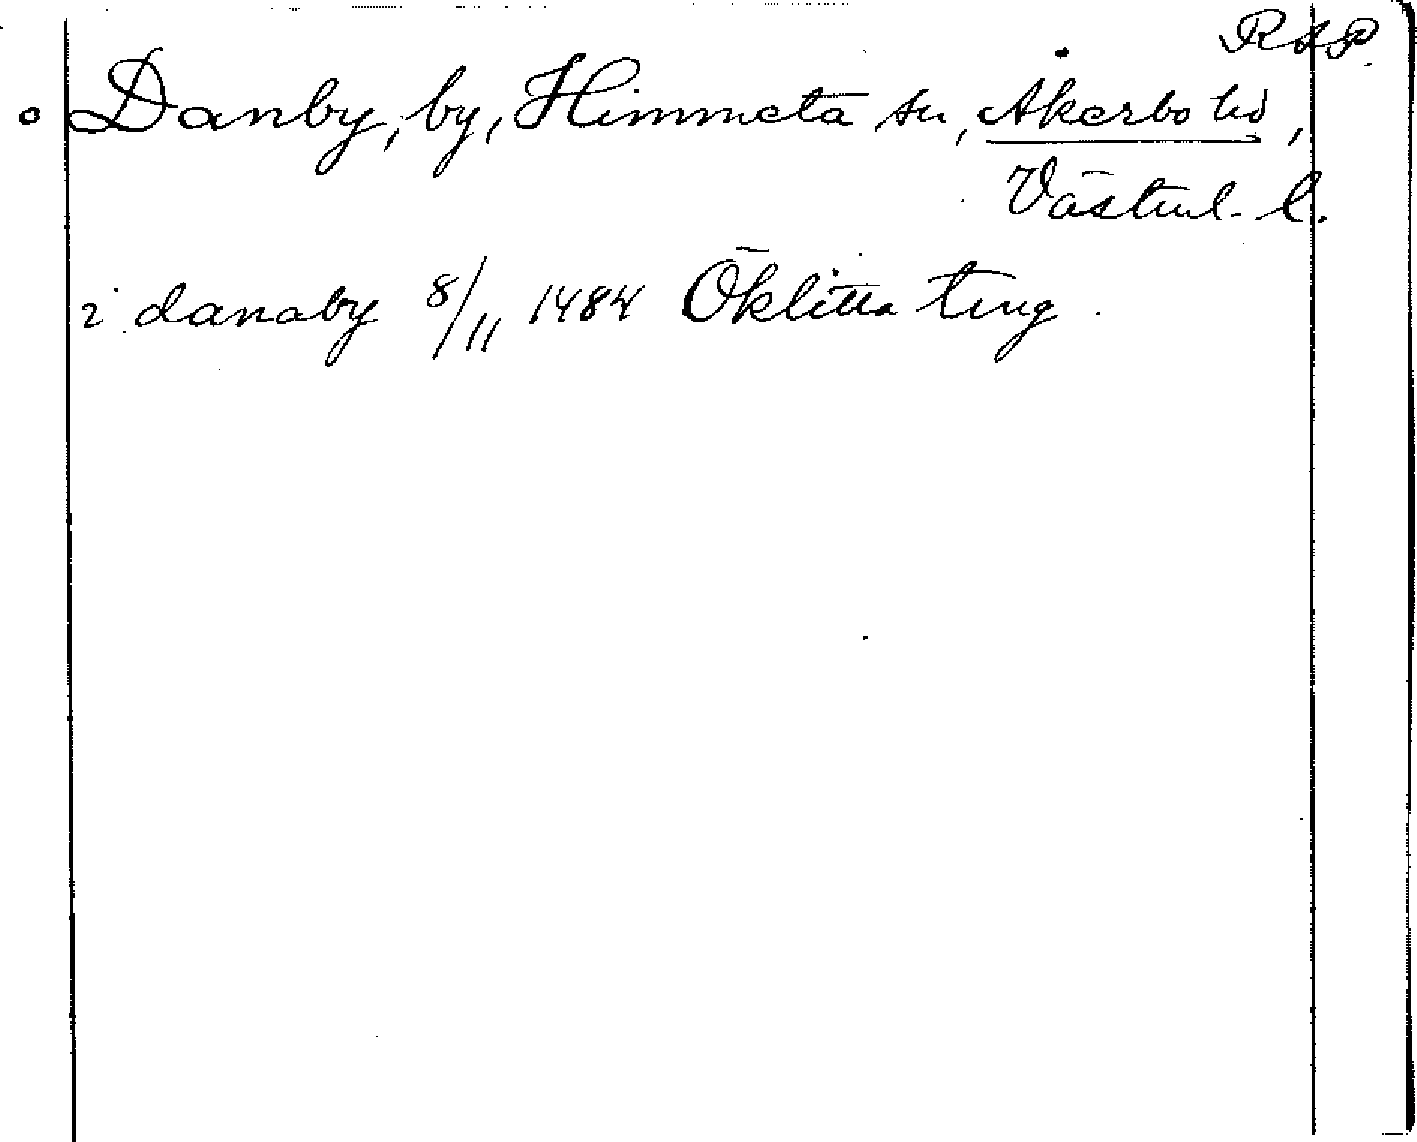 RAP.
Danby, by, Himmeta sn, Åkerbo hd,
Västml. l.
i danaby 8/11 1484 Öklitta ting.